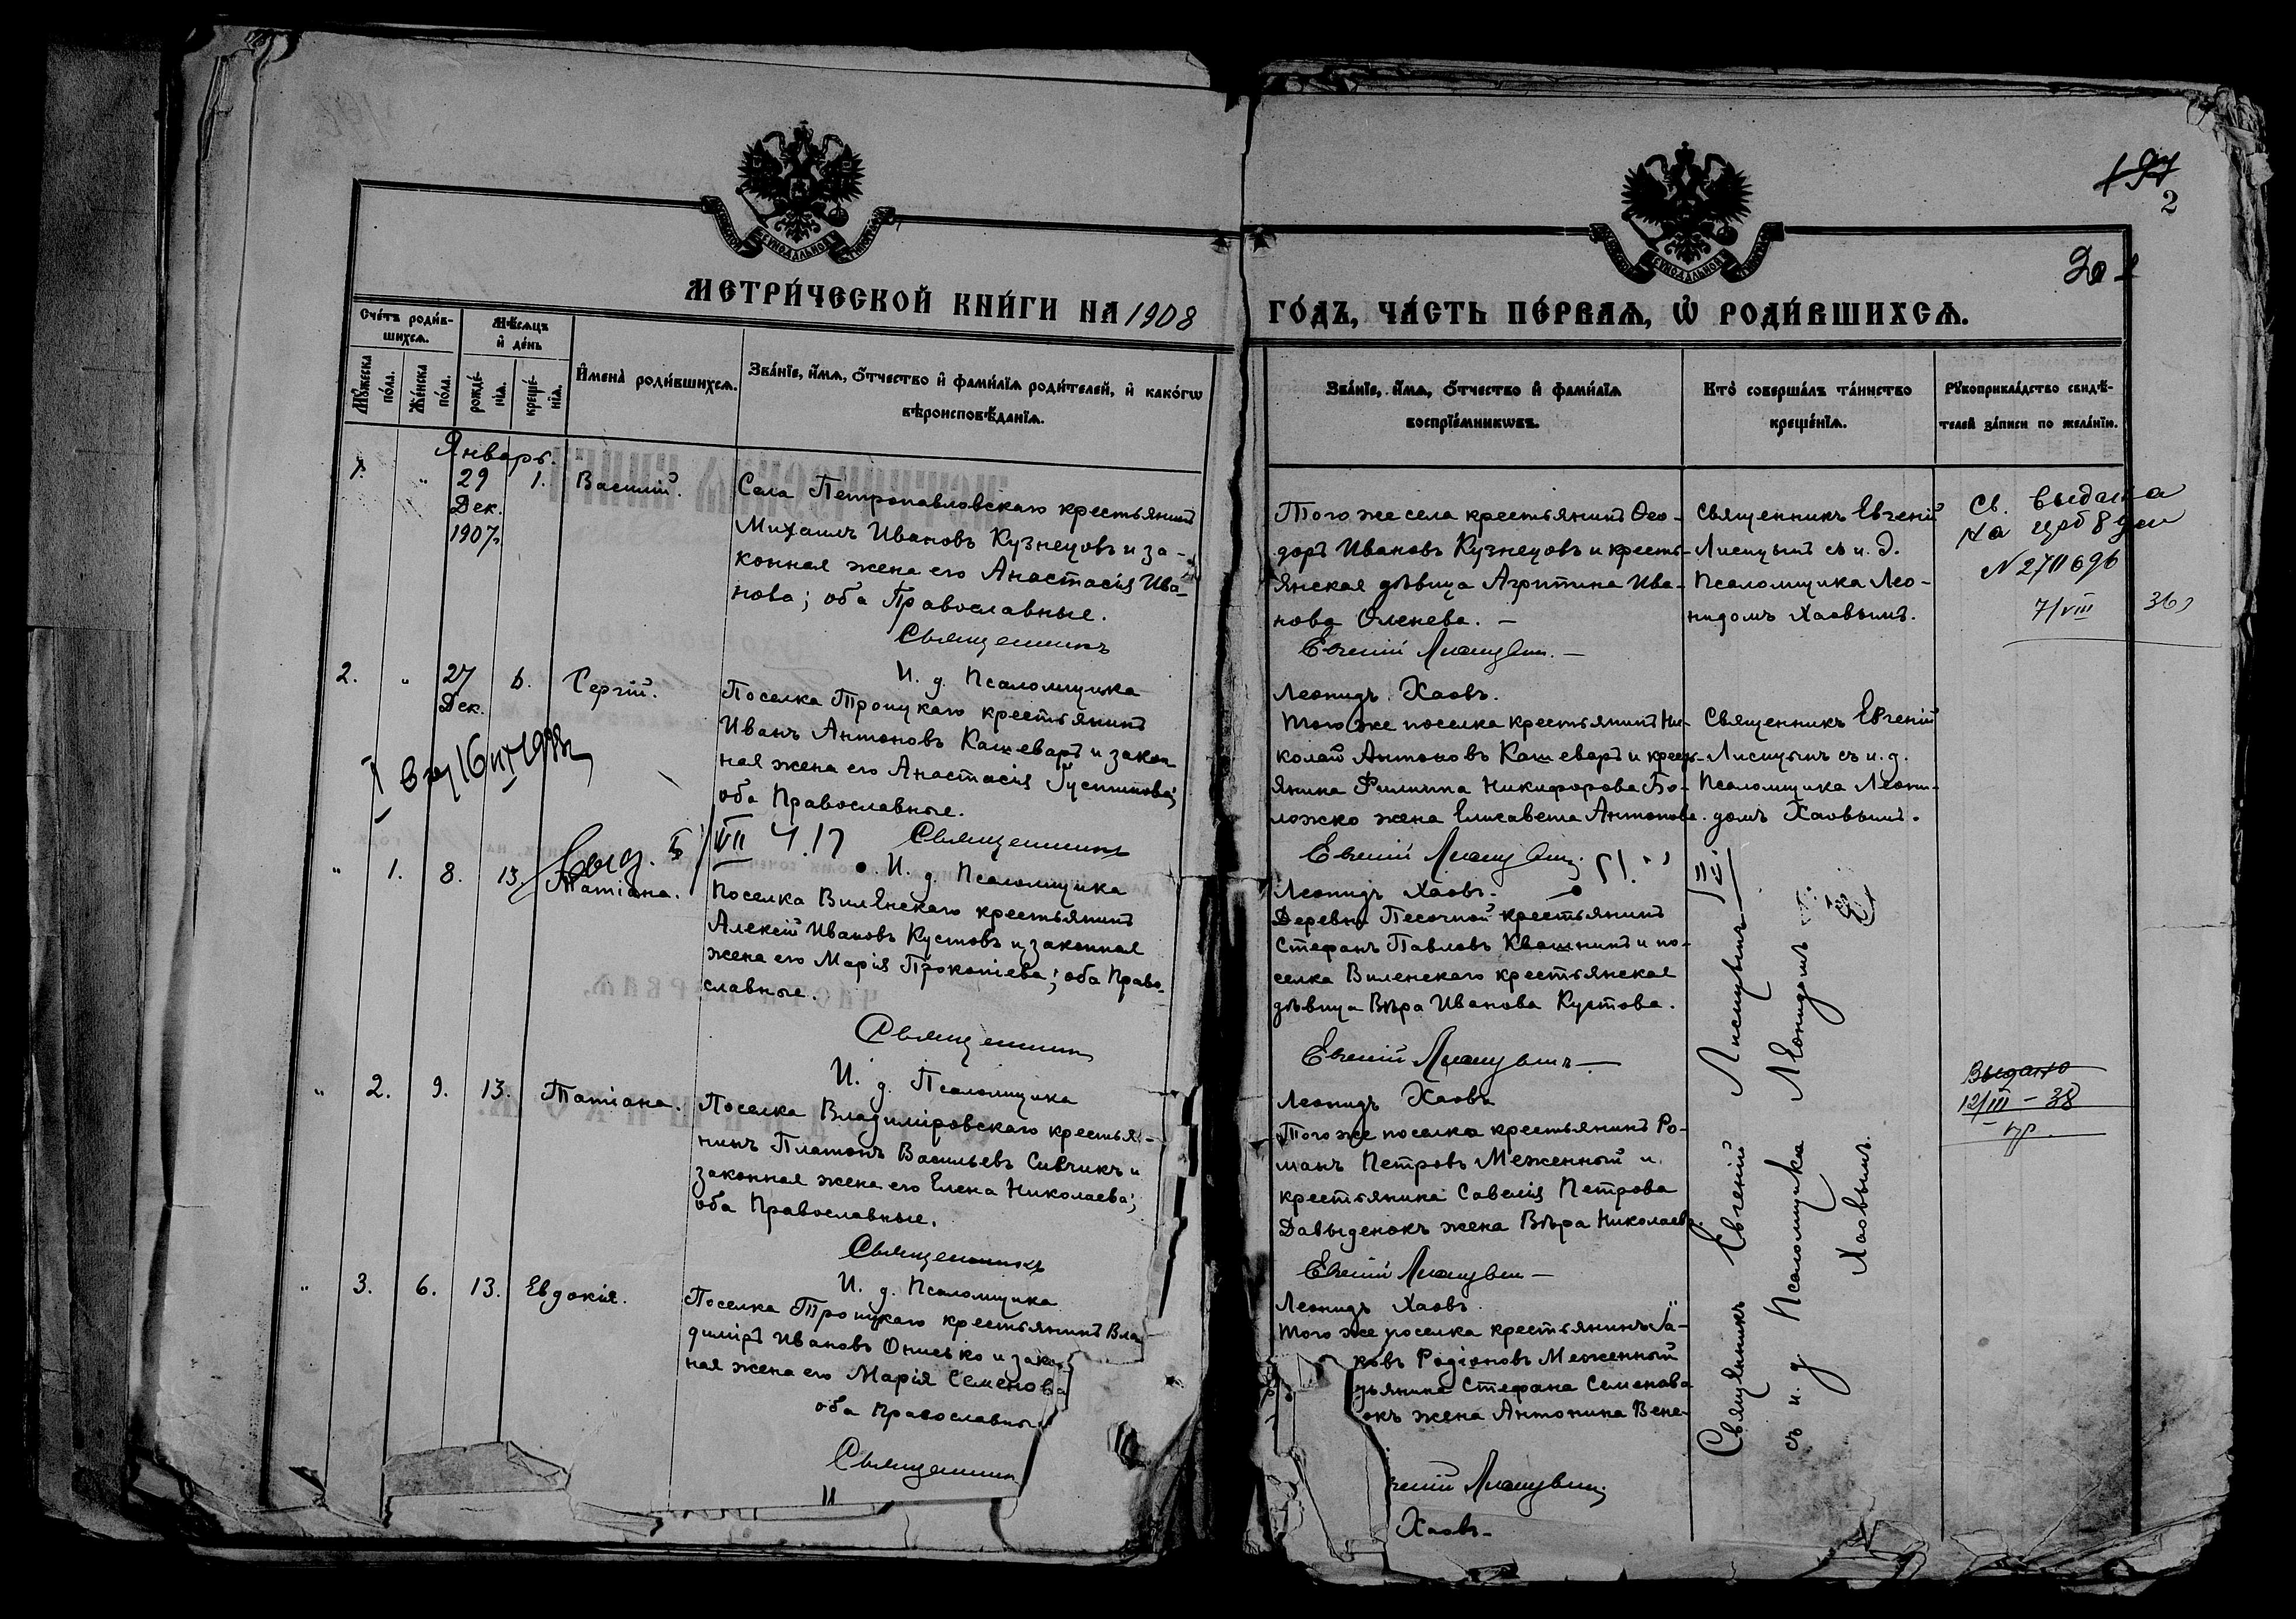 197
2
МЕТРИ́ЧЕСКОЙ КНИ́ГИ НА 1908
ГО́ДЪ, ЧА́СТЬ ПЕ́РВАЯ, Ѡ РОДИ́ВШИХСЯ.
Сче́тъ роди́в-
шихся.
Мѣ́сяцъ
и҆ де́нь
Мꙋ́жеска
по́ла.
Же́нска
по́ла.
рожде́-
нїѧ.
креще́-
нїѧ.
И҆мена̀ роди́вшихся.
Зва́нїе, и҆́мѧ, ѻ҆́тчество и҆ фами́лїѧ роди́телей, и҆ како́гѡ
вѣроисповѣ́данїѧ.
Зва́нїе, и҆́мѧ, ѻ҆́тчество и҆ фами́лїѧ
воспрїе́мникѡвъ.
Кто̀ соверша́лъ та́инство
креще́нїѧ.
Рꙋкоприкла́дство свидѣ́-
телей за́писи по жела́нїю.
Январь.
1. " 29 1. Василій.
Дек.
1907г.
Села Петропавловскаго крестьянинъ
Михаилъ Ивановъ Кузнецовъ и за-
конная жена его Анастасія Ива-
нова; оба Православные.
Священникъ
И. д. Псаломщика
Того же села крестьянинъ Ѳео-
доръ Ивановъ Кузнецовъ и кресть-
янская дѣвица Агриппина Ива-
нова Оленева. –
Евгеній Лисицынъ. –
Леонидъ Хаовъ.
Священникъ Евгеній
Лисицынъ съ и. д.
Псаломщика Лео-
нидомъ Хаовымъ.
Св. выдана
7/VIII 36
2. " 27 6. Сергій.
Дек.
Поселка Троицкаго крестьянинъ
Иванъ Антоновъ Кашеваръ и закон-
ная жена его Анастасія Густинова;
оба Православные.
Священникъ
И. д. Псаломщика
Того же поселка крестьянинъ Ни-
колай Антоновъ Кашеваръ и кресть-
янина Филиппа Никифорова Бо-
ложко жена Елисавета Антонова.
Евгеній Лисицынъ.
Леонидъ Хаовъ.
Священникъ Евгеній
Лисицынъ съ и. д.
Псаломщика Леони-
домъ Хаовымъ.
" 1. 8. 13. Татіана.
Поселка Виленскаго крестьянинъ
Алексій Ивановъ Кустовъ и законная
жена его Марія Прокопіева; оба Право-
славные.
Священникъ
И. д. Псаломщика
Деревни Песочной крестьянинъ
Стефанъ Павловъ Квашнинъ и по-
селка Виленскаго крестьянская
дѣвица Вѣра Иванова Кустова.
Евгеній Лисицынъ –
Леонидъ Хаовъ
" 2. 9. 13. Татіана.
Поселка Владиміровскаго крестья-
нинъ Платонъ Васильевъ Сивчикъ и
законная жена его Елена Николаева;
оба Православные.
Священникъ
И. д. Псаломщика
Того же поселка крестьянинъ Ро-
манъ Петровъ Меженный и
крестьянина Савелія Петрова
Давыденокъ жена Вѣра Николаева.
Евгеній Лисицынъ –
Леонидъ Хаовъ.
Выдано
12/III – 38
" 3. 6. 13. Евдокія.
Поселка Троицкаго крестьянинъ Вла-
диміръ Ивановъ Онисько и закон-
ная жена его Марія Семенова
оба Православные
Священникъ
И
Того же поселка крестьянинъ Іа-
ковъ Родіоновъ Меженный
ьянина Стефана Семенова
окъ жена Антонина Вене-
геній Лисицынъ.
Хаовъ –
Священникъ Евгеній Лисицынъ
съ и. д Псаломщика Леонидомъ
Хаовымъ.